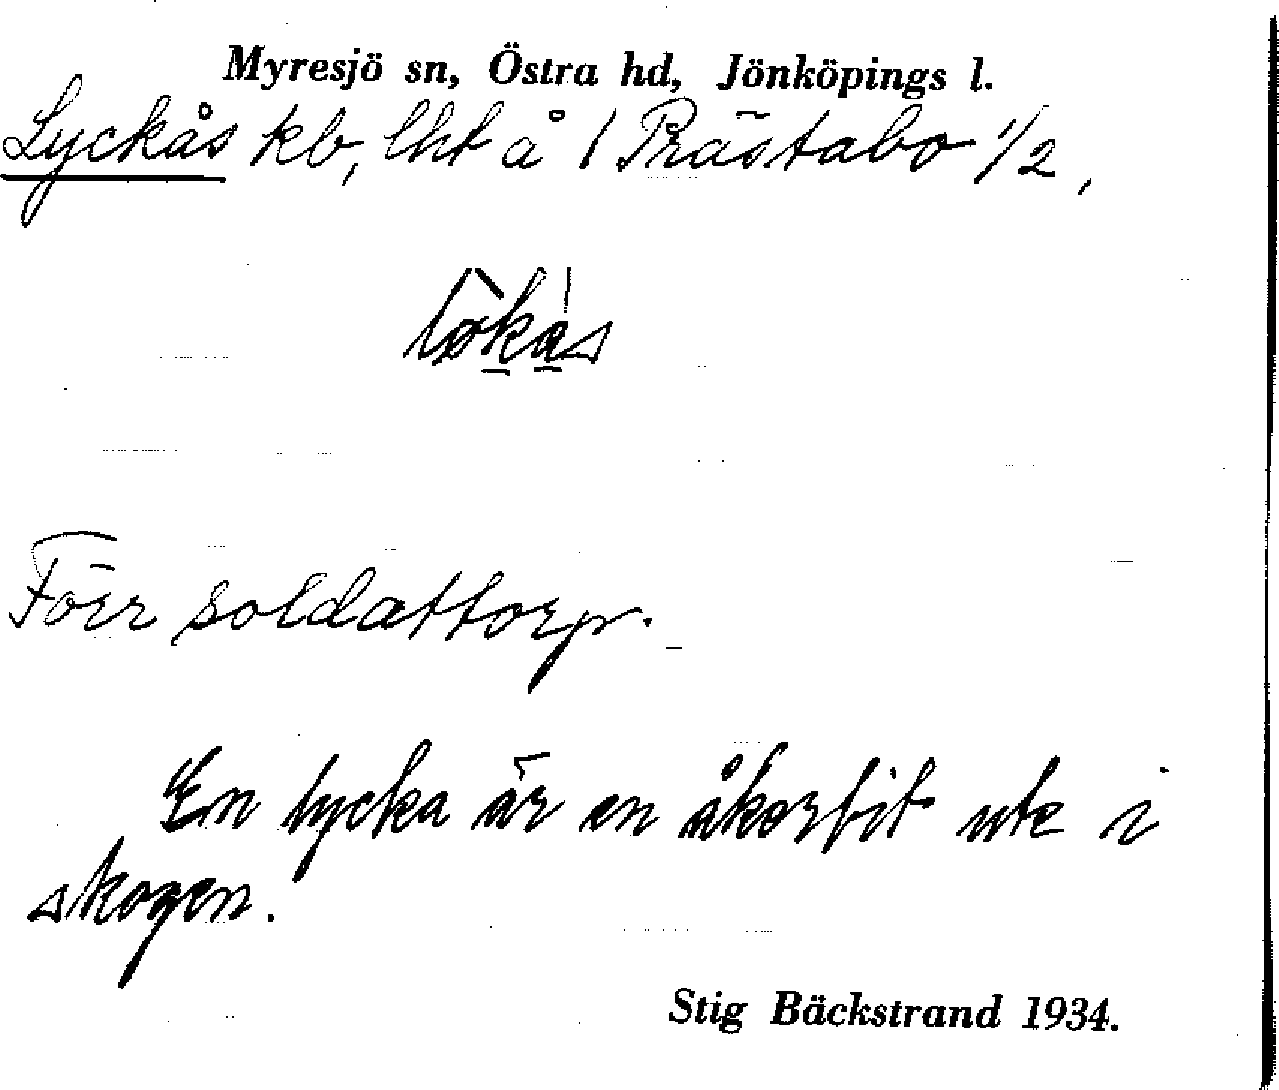 Myresjö sn, Östra hd, Jönköpings l.
Lyckås kb, lht å 1 Prästabo 1/2,
Förr soldattorp.
En lycka är en åkerbit ute i
skogen.
Stig Bäckstrand 1934.